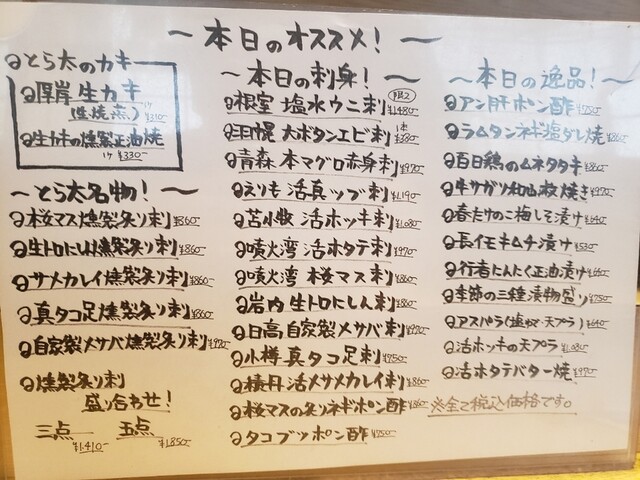 〜本日のオススメ！〜
とら太のカキ
厚岸 生カキ
(生・焼・蒸) 1ケ ¥310-
生カキの燻製正油焼
1ケ ¥330-
〜とら太名物！〜
桜マス燻製炙り刺 ¥860-
生トロにしん燻製炙り刺 ¥860-
サメカレイ燻製炙り刺 ¥860-
真タコ足燻製炙り刺 ¥860-
自家製〆サバ燻製炙り刺 ¥970-
燻製炙り刺
盛り合わせ！
三点 ¥1.410- 五点 ¥1.850-
〜本日の刺身！〜
根室 塩水ウニ刺 限2 ¥1480-
羽幌 大ボタンエビ刺 1本 ¥380-
青森 本マグロ赤身刺 ¥970-
えりも 活真ツブ刺 ¥1.190-
苫小牧 活ホッキ刺 ¥1.080-
噴火湾 活ホタテ刺 ¥970-
噴火湾 桜マス刺 ¥860-
岩内 生トロにしん刺 ¥860-
日高 自家製〆サバ刺 ¥970-
小樽 真タコ足刺 ¥750-
積丹 活〆サメカレイ刺 ¥860-
桜マスの炙りネギポン酢 ¥860-
タコブツポン酢 ¥750-
〜本日の逸品！〜
アン肝ポン酢 ¥750-
ラムタンネギ塩ダレ焼 ¥860-
百日鶏のムネタタキ ¥860-
牛サガリ和山椒焼き ¥970-
春たけのこ梅しそ漬け ¥640-
長イモキムチ漬け ¥530-
行者にんにく正油漬け ¥640-
季節の三種漬物盛り ¥750-
アスパラ(塩ゆで・天プラ) ¥640-
活ホッキの天プラ ¥1.080-
活ホタテバター焼 ¥970-
※全て税込価格です。